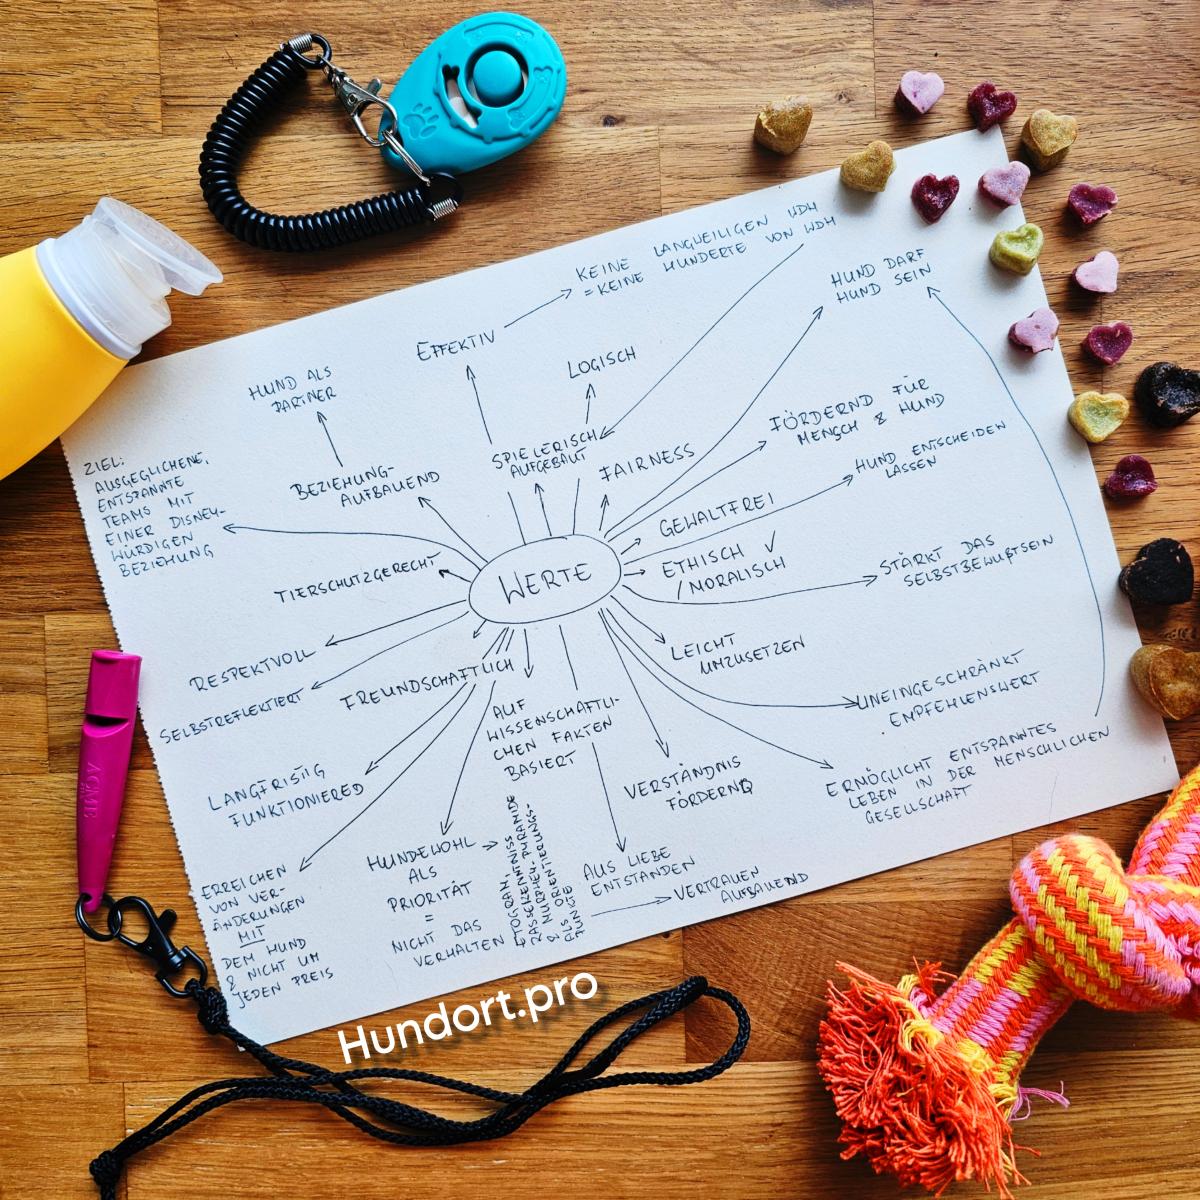 KEINE LANGWEILIGEN WDH
= KEINE HUNDERTE VON WDH
HUND DARF
HUND SEIN
EFFEKTIV
LOGISCH
HUND ALS
PARTNER
SPIELERISCH
AUFGEBAUT
FAIRNESS
FÖRDERND FÜR
MENSCH & HUND
HUND ENTSCHEIDEN
LASSEN
ZIEL:
AUSGEGLICHENE,
ENTSPANNTE
TEAMS MIT
EINER DISNEY-
WÜRDIGEN
BEZIEHUNG
BEZIEHUNG-
AUFBAUEND
GEWALTFREI
ETHISCH ✓
/MORALISCH
WERTE
TIERSCHUTZGERECHT
STÄRKT DAS
SELBSTBEWUßTSEIN
RESPEKTVOLL
SELBSTREFLEKTIERT
FREUNDSCHAFTLICH
LEICHT
UMZUSETZEN
UNEINGESCHRÄNKT
EMPFEHLENSWERT
AUF
WISSENSCHAFTLI-
CHEN FAKTEN
BASIERT
LANGFRISTIG
FUNKTIONIEREND
VERSTÄNDNIS
FÖRDERND
ERMÖGLICHT ENTSPANNTES
LEBEN IN DER MENSCHLICHEN
GESELLSCHAFT
ERREICHEN
VON VER-
ÄNDERUNGEN
MIT
DEM HUND
& NICHT UM
JEDEN PREIS
HUNDEWOHL
ALS
PRIORITÄT
=
NICHT DAS
VERHALTEN
ETOGRAM,
RASSEKENNTNISS
& MURPHEY-PYRAMIDE
ALS ORIENTIERUNGS-
AUS LIEBE
ENTSTANDEN
VERTRAUEN
AUFBAUEND
ACME
Hundort.pro